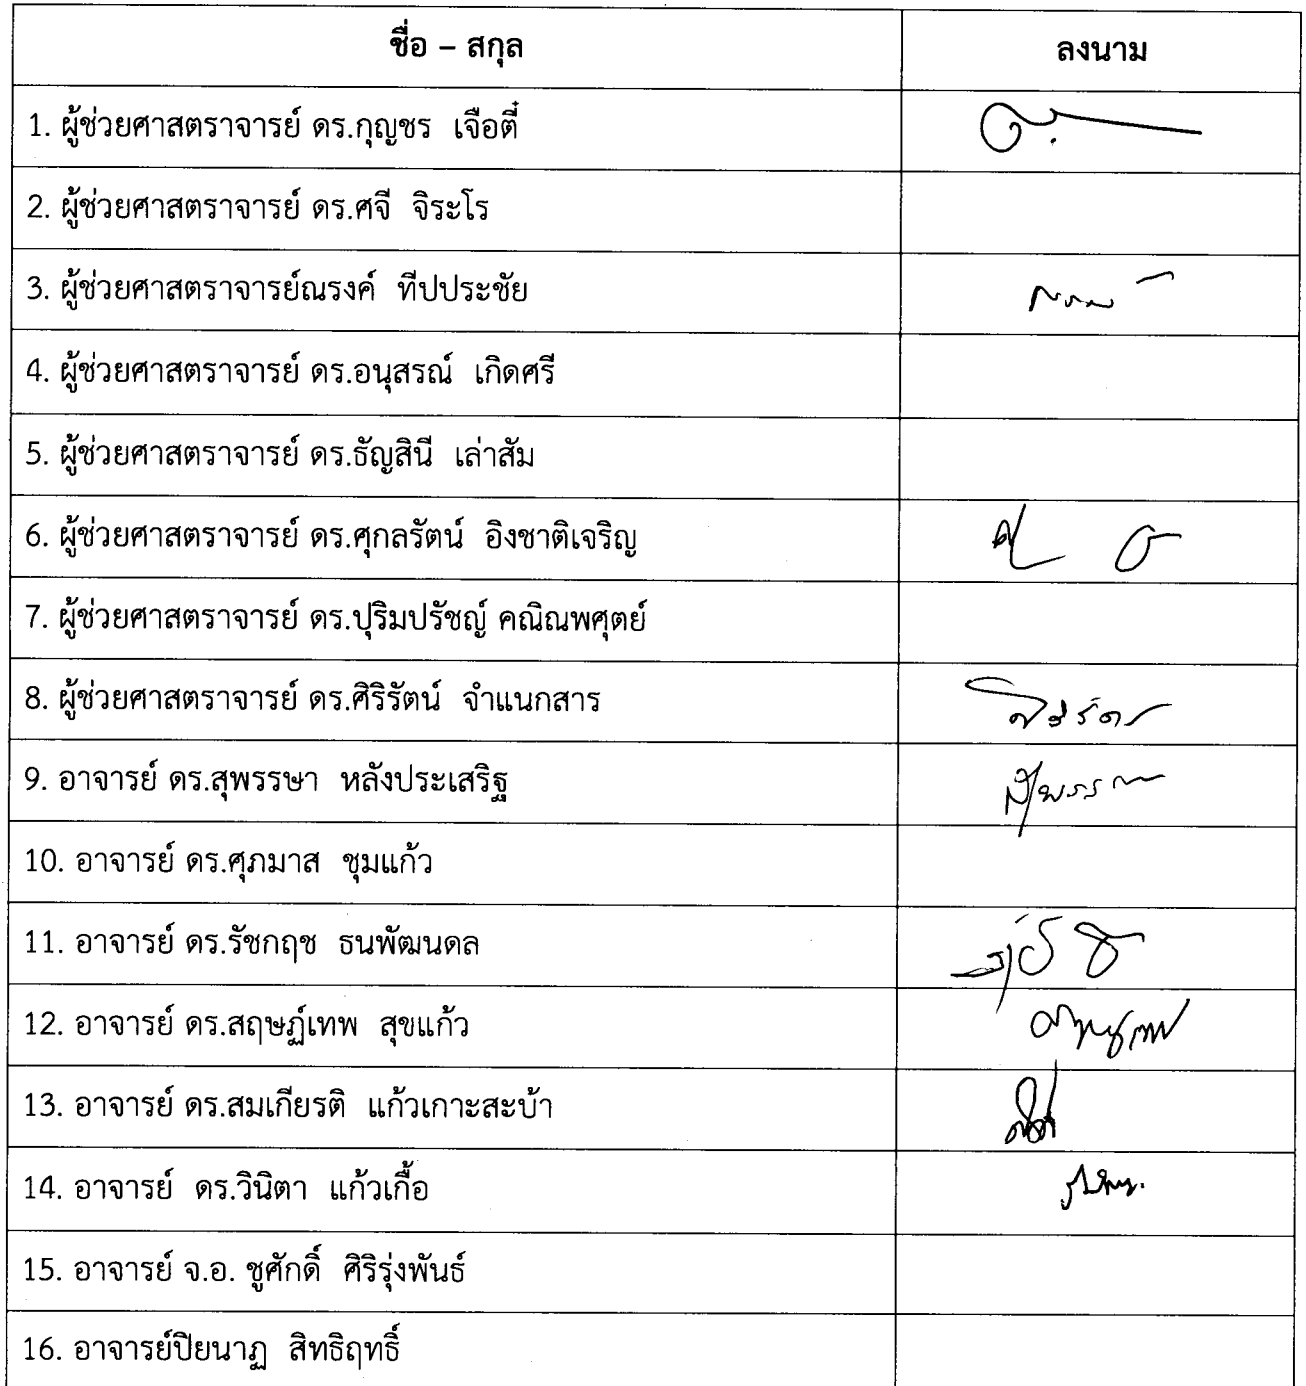 ชื่อ – สกุล ลงนาม
1. ผู้ช่วยศาสตราจารย์ ดร.กุญชร เจือตี๋
2. ผู้ช่วยศาสตราจารย์ ดร.ศจี จิระโร
3. ผู้ช่วยศาสตราจารย์ณรงค์ ทีปประชัย
4. ผู้ช่วยศาสตราจารย์ ดร.อนุสรณ์ เกิดศรี
5. ผู้ช่วยศาสตราจารย์ ดร.ธัญสินี เล่าสัม
6. ผู้ช่วยศาสตราจารย์ ดร.ศุกลรัตน์ อิงชาติเจริญ
7. ผู้ช่วยศาสตราจารย์ ดร.ปุริมปรัชญ์ คณิณพศุตย์
8. ผู้ช่วยศาสตราจารย์ ดร.ศิริรัตน์ จำแนกสาร
9. อาจารย์ ดร.สุพรรษา หลังประเสริฐ
10. อาจารย์ ดร.ศุภมาส ชุมแก้ว
11. อาจารย์ ดร.รัชกฤช ธนพัฒนดล
12. อาจารย์ ดร.สฤษฏ์เทพ สุขแก้ว
13. อาจารย์ ดร.สมเกียรติ แก้วเกาะสะบ้า
14. อาจารย์ ดร.วินิตา แก้วเกื้อ
15. อาจารย์ จ.อ. ชูศักดิ์ ศิริรุ่งพันธ์
16. อาจารย์ปิยนาฏ สิทธิฤทธิ์